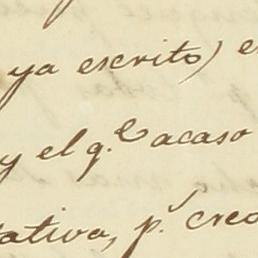 ya escrito) e
y el q.e acaso
tativa, p.r creo